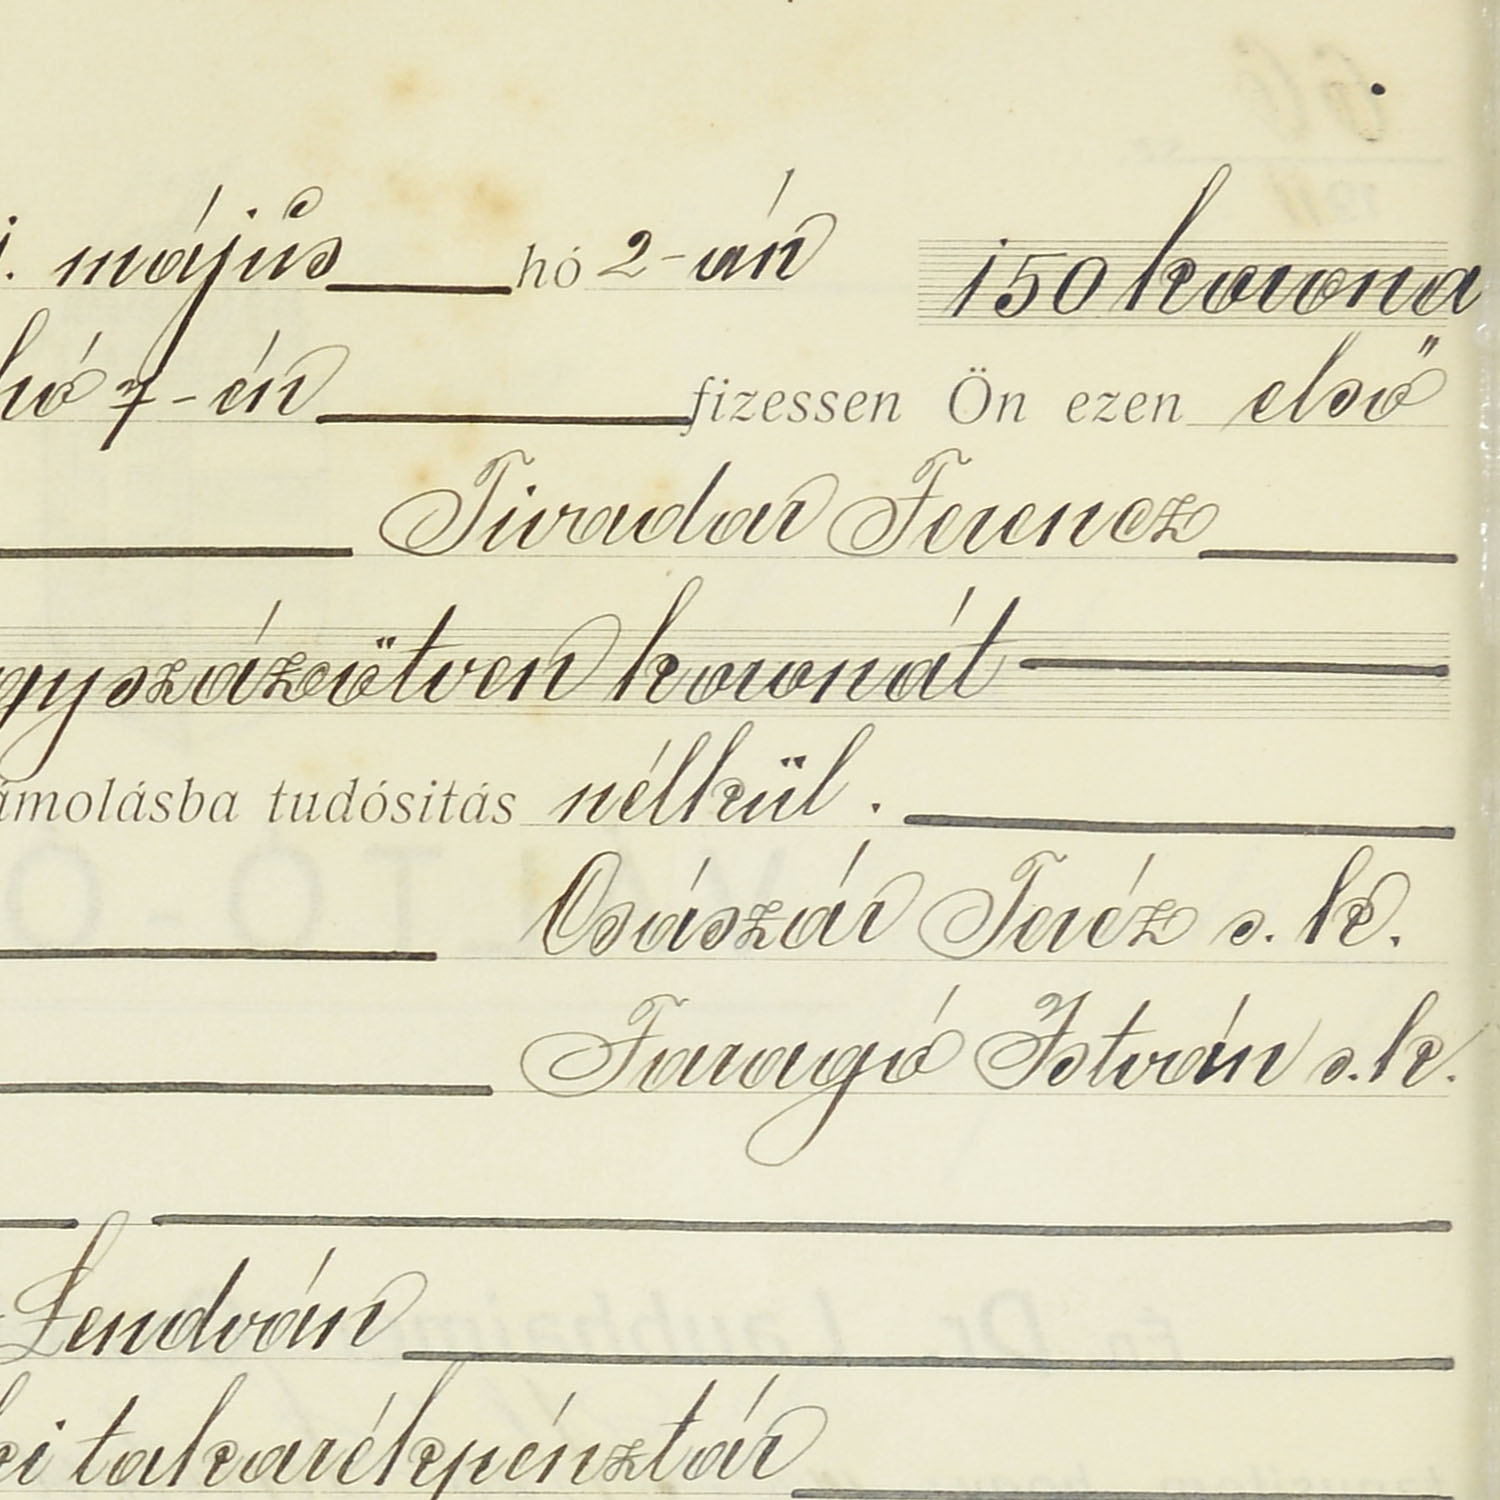 i. május hó 2-án 150 korona
hó 7-én fizessen Ön ezen első
Tivadar Ferencz
gyszázötven koronát
ámolásba tudósitás nélkül.
Császár Teréz s. k.
Faragó István s. k.
Lendván
ki takarékpénztár